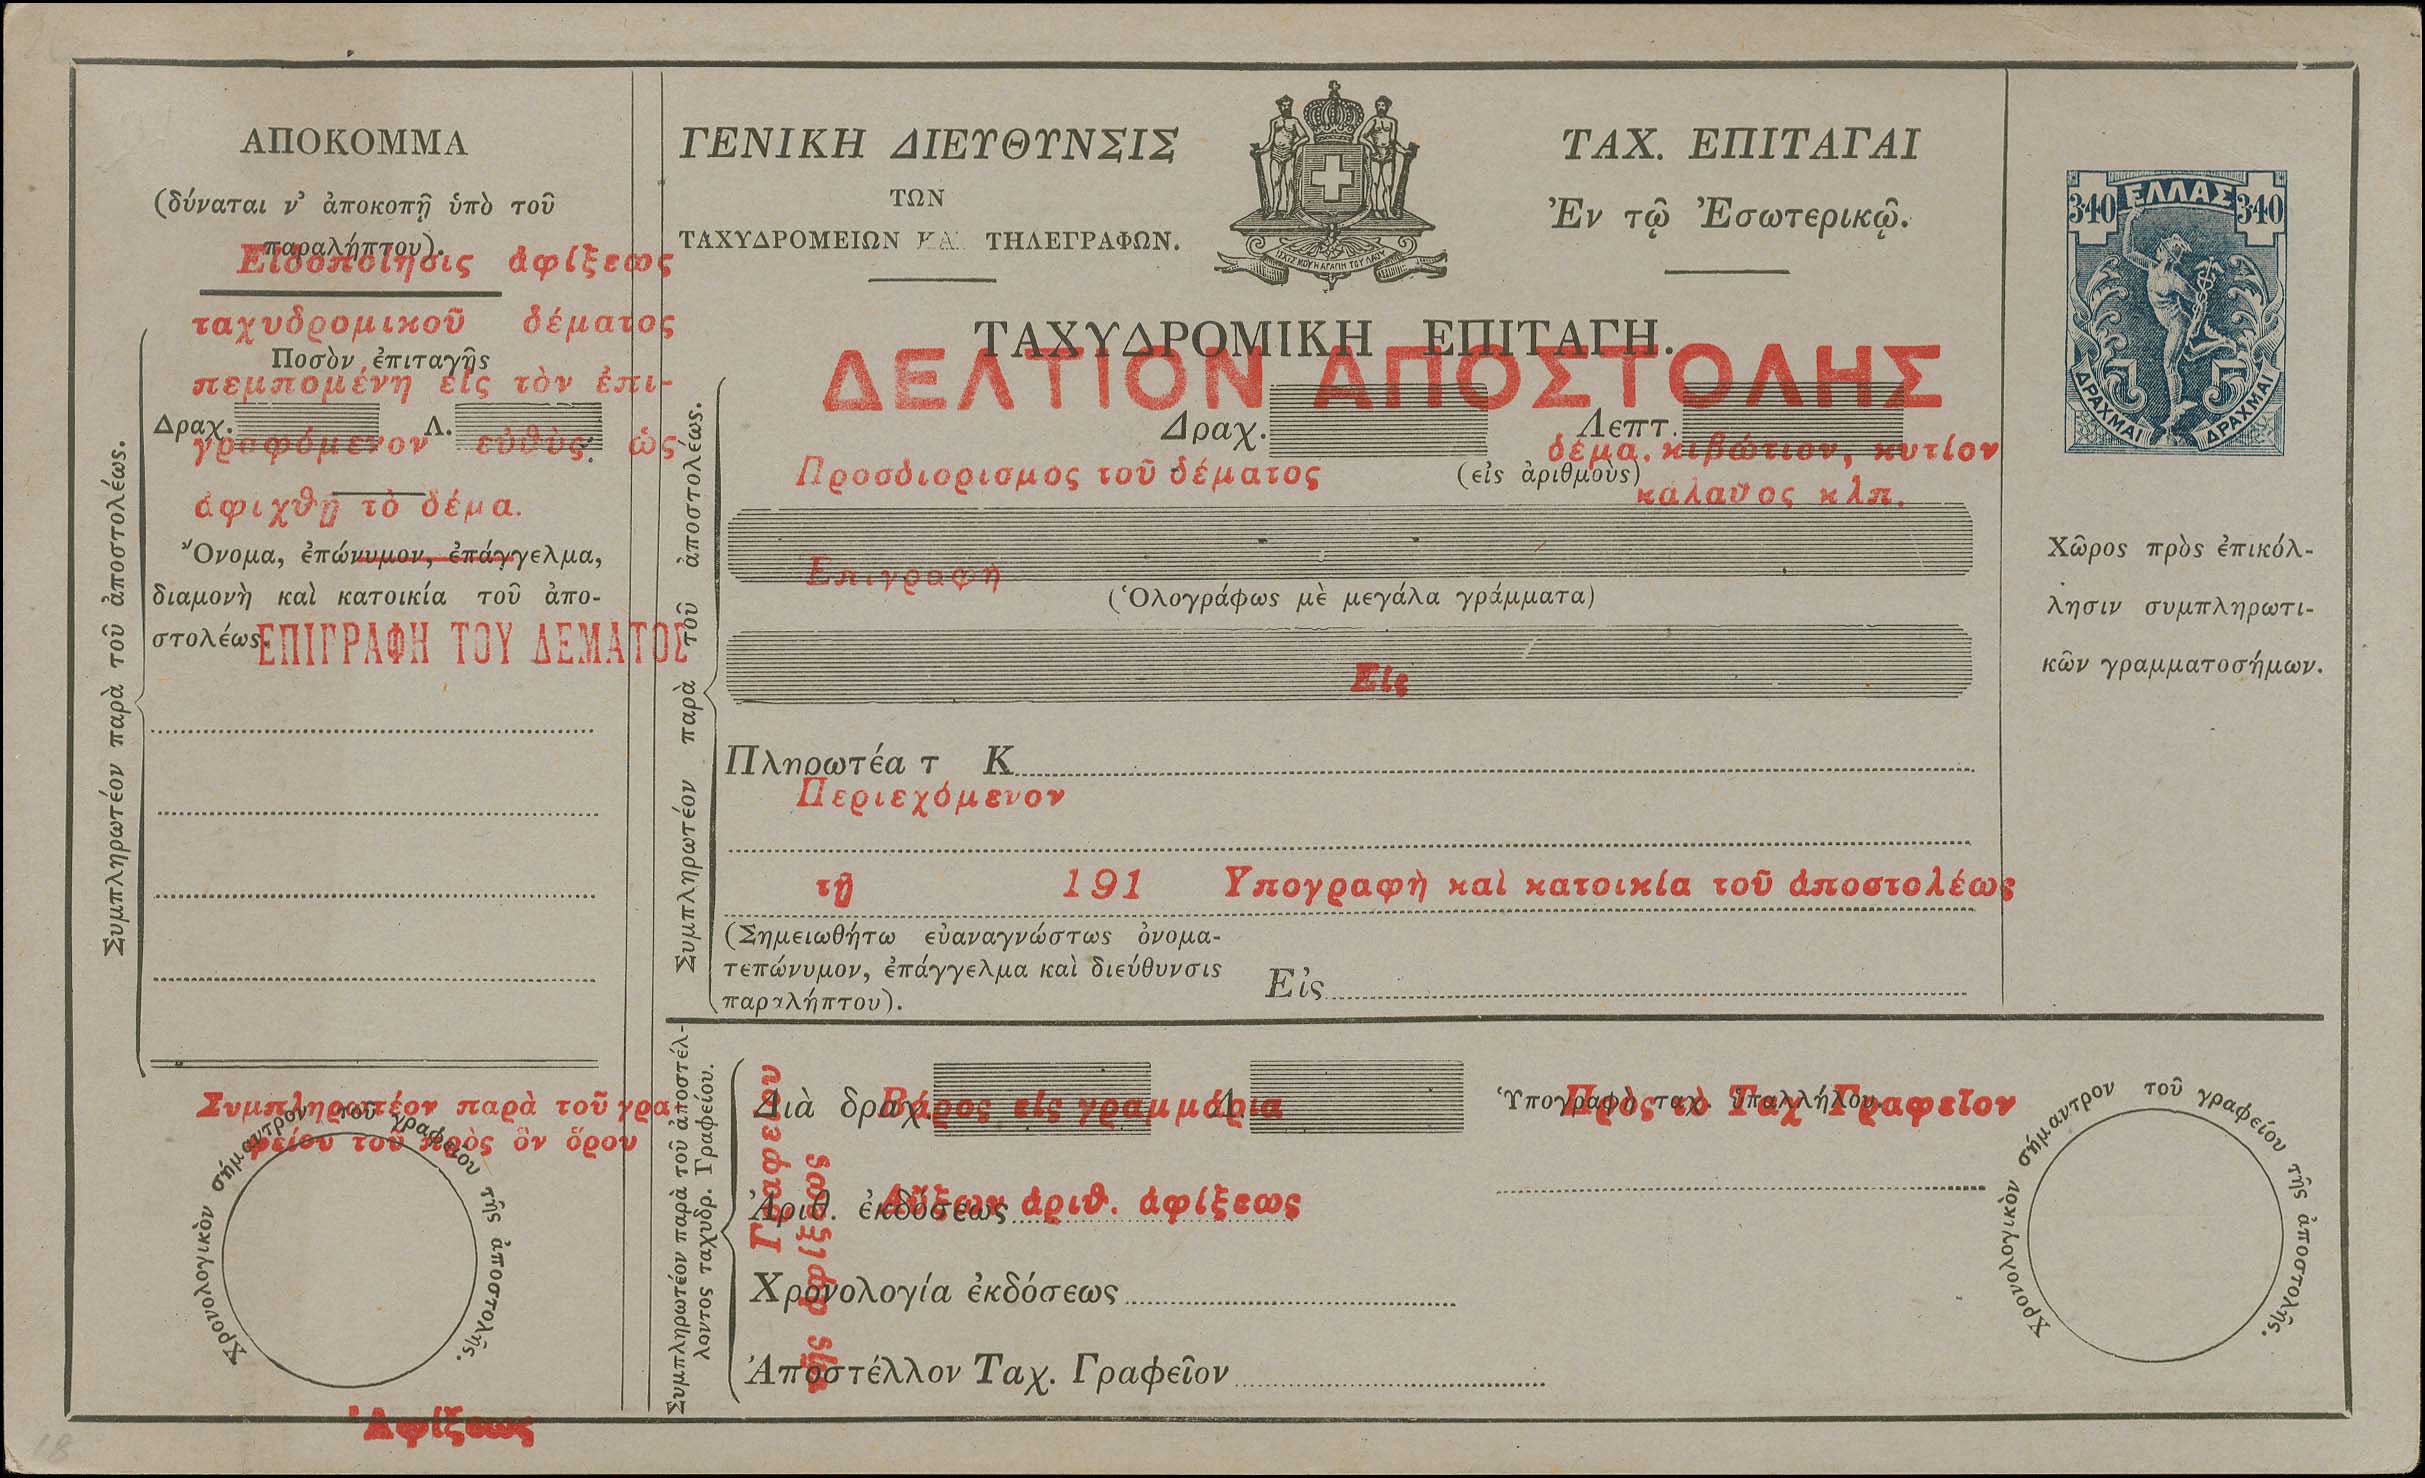 ΑΠΟΚΟΜΜΑ
(δύναται ν' ἀποκοπῇ ὑπὸ τοῦ
παραλήπτου).
Εἰδοποίησις ἀφίξεως
ταχυδρομικοῦ δέματος
Ποσὸν ἐπιταγῆς
πεμπομένη εἰς τὸν ἐπι-
Δραχ. Λ.
γραφόμενον εὐθὺς ὡς
ἀφιχθῇ τὸ δέμα.
Ὄνομα, ἐπώνυμον, ἐπάγγελμα,
διαμονὴ καὶ κατοικία τοῦ ἀπο-
στολέως.
ΕΠΙΓΡΑΦΗ ΤΟΥ ΔΕΜΑΤΟΣ
Συμπληρωτέον παρὰ τοῦ ἀποστολέως.
Συμπληρωτέον παρὰ τοῦ γρα
φείου τοῦ πρὸς ὃν ὅρου
Χρονολογικὸν σήμαντρον τοῦ γραφείου τῆς ἀποστολῆς.
Ἀφίξεως
ΓΕΝΙΚΗ ΔΙΕΥΘΥΝΣΙΣ
ΤΩΝ
ΤΑΧΥΔΡΟΜΕΙΩΝ ΚΑΙ ΤΗΛΕΓΡΑΦΩΝ.
ΙΣΧΥΣ ΜΟΥ Η ΑΓΑΠΗ ΤΟΥ ΛΑΟΥ
ΤΑΧ. ΕΠΙΤΑΓΑΙ
Ἐν τῷ Ἐσωτερικῷ.
ΤΑΧΥΔΡΟΜΙΚΗ ΕΠΙΤΑΓΗ.
ΔΕΛΤΙΟΝ ΑΠΟΣΤΟΛΗΣ
Δραχ. Λεπτ.
δέμα. κιβώτιον, κυτίον
Προσδιορισμος τοῦ δέματος
(εἰς ἀριθμοὺς)
καλαθος κλπ.
Επιγραφὴ
(Ὁλογράφως μὲ μεγάλα γράμματα)
Εἰς
Πληρωτέα τ Κ
Περιεχόμενον
τῇ 191 Υπογραφὴ καὶ κατοικία τοῦ ἀποστολέως
(Σημειωθήτω εὐαναγνώστως ὀνομα-
τεπώνυμον, ἐπάγγελμα καὶ διεύθυνσις
παραλήπτου).
Εἰς
Συμπληρωτέον παρὰ τοῦ ἀποστολέως.
340 ΕΛΛΑΣ 340
5 5
ΔΡΑΧΜΑΙ ΔΡΑΧΜΑΙ
Χῶρος πρὸς ἐπικόλ-
λησιν συμπληρωτι-
κῶν γραμματοσήμων.
Συμπληρωτέον παρὰ τοῦ ἀποστέλ-
λοντος ταχυδρ. Γραφείου.
Γραφείου
τῆς ἀφίξεως
Διὰ δραχ. Λ.
Βάρος εἰς γραμμάρια
Ὑπογραφὴ ταχ. ὑπαλλήλου.
Πρὸς τὸ Ταχ Γραφεῖον
Ἀριθ. ἐκδόσεως
Αὔξων ἀριθ. ἀφίξεως
Χρονολογία ἐκδόσεως
Ἀποστέλλον Ταχ. Γραφεῖον
Χρονολογικὸν σήμαντρον τοῦ γραφείου τῆς ἀποστολῆς.
18